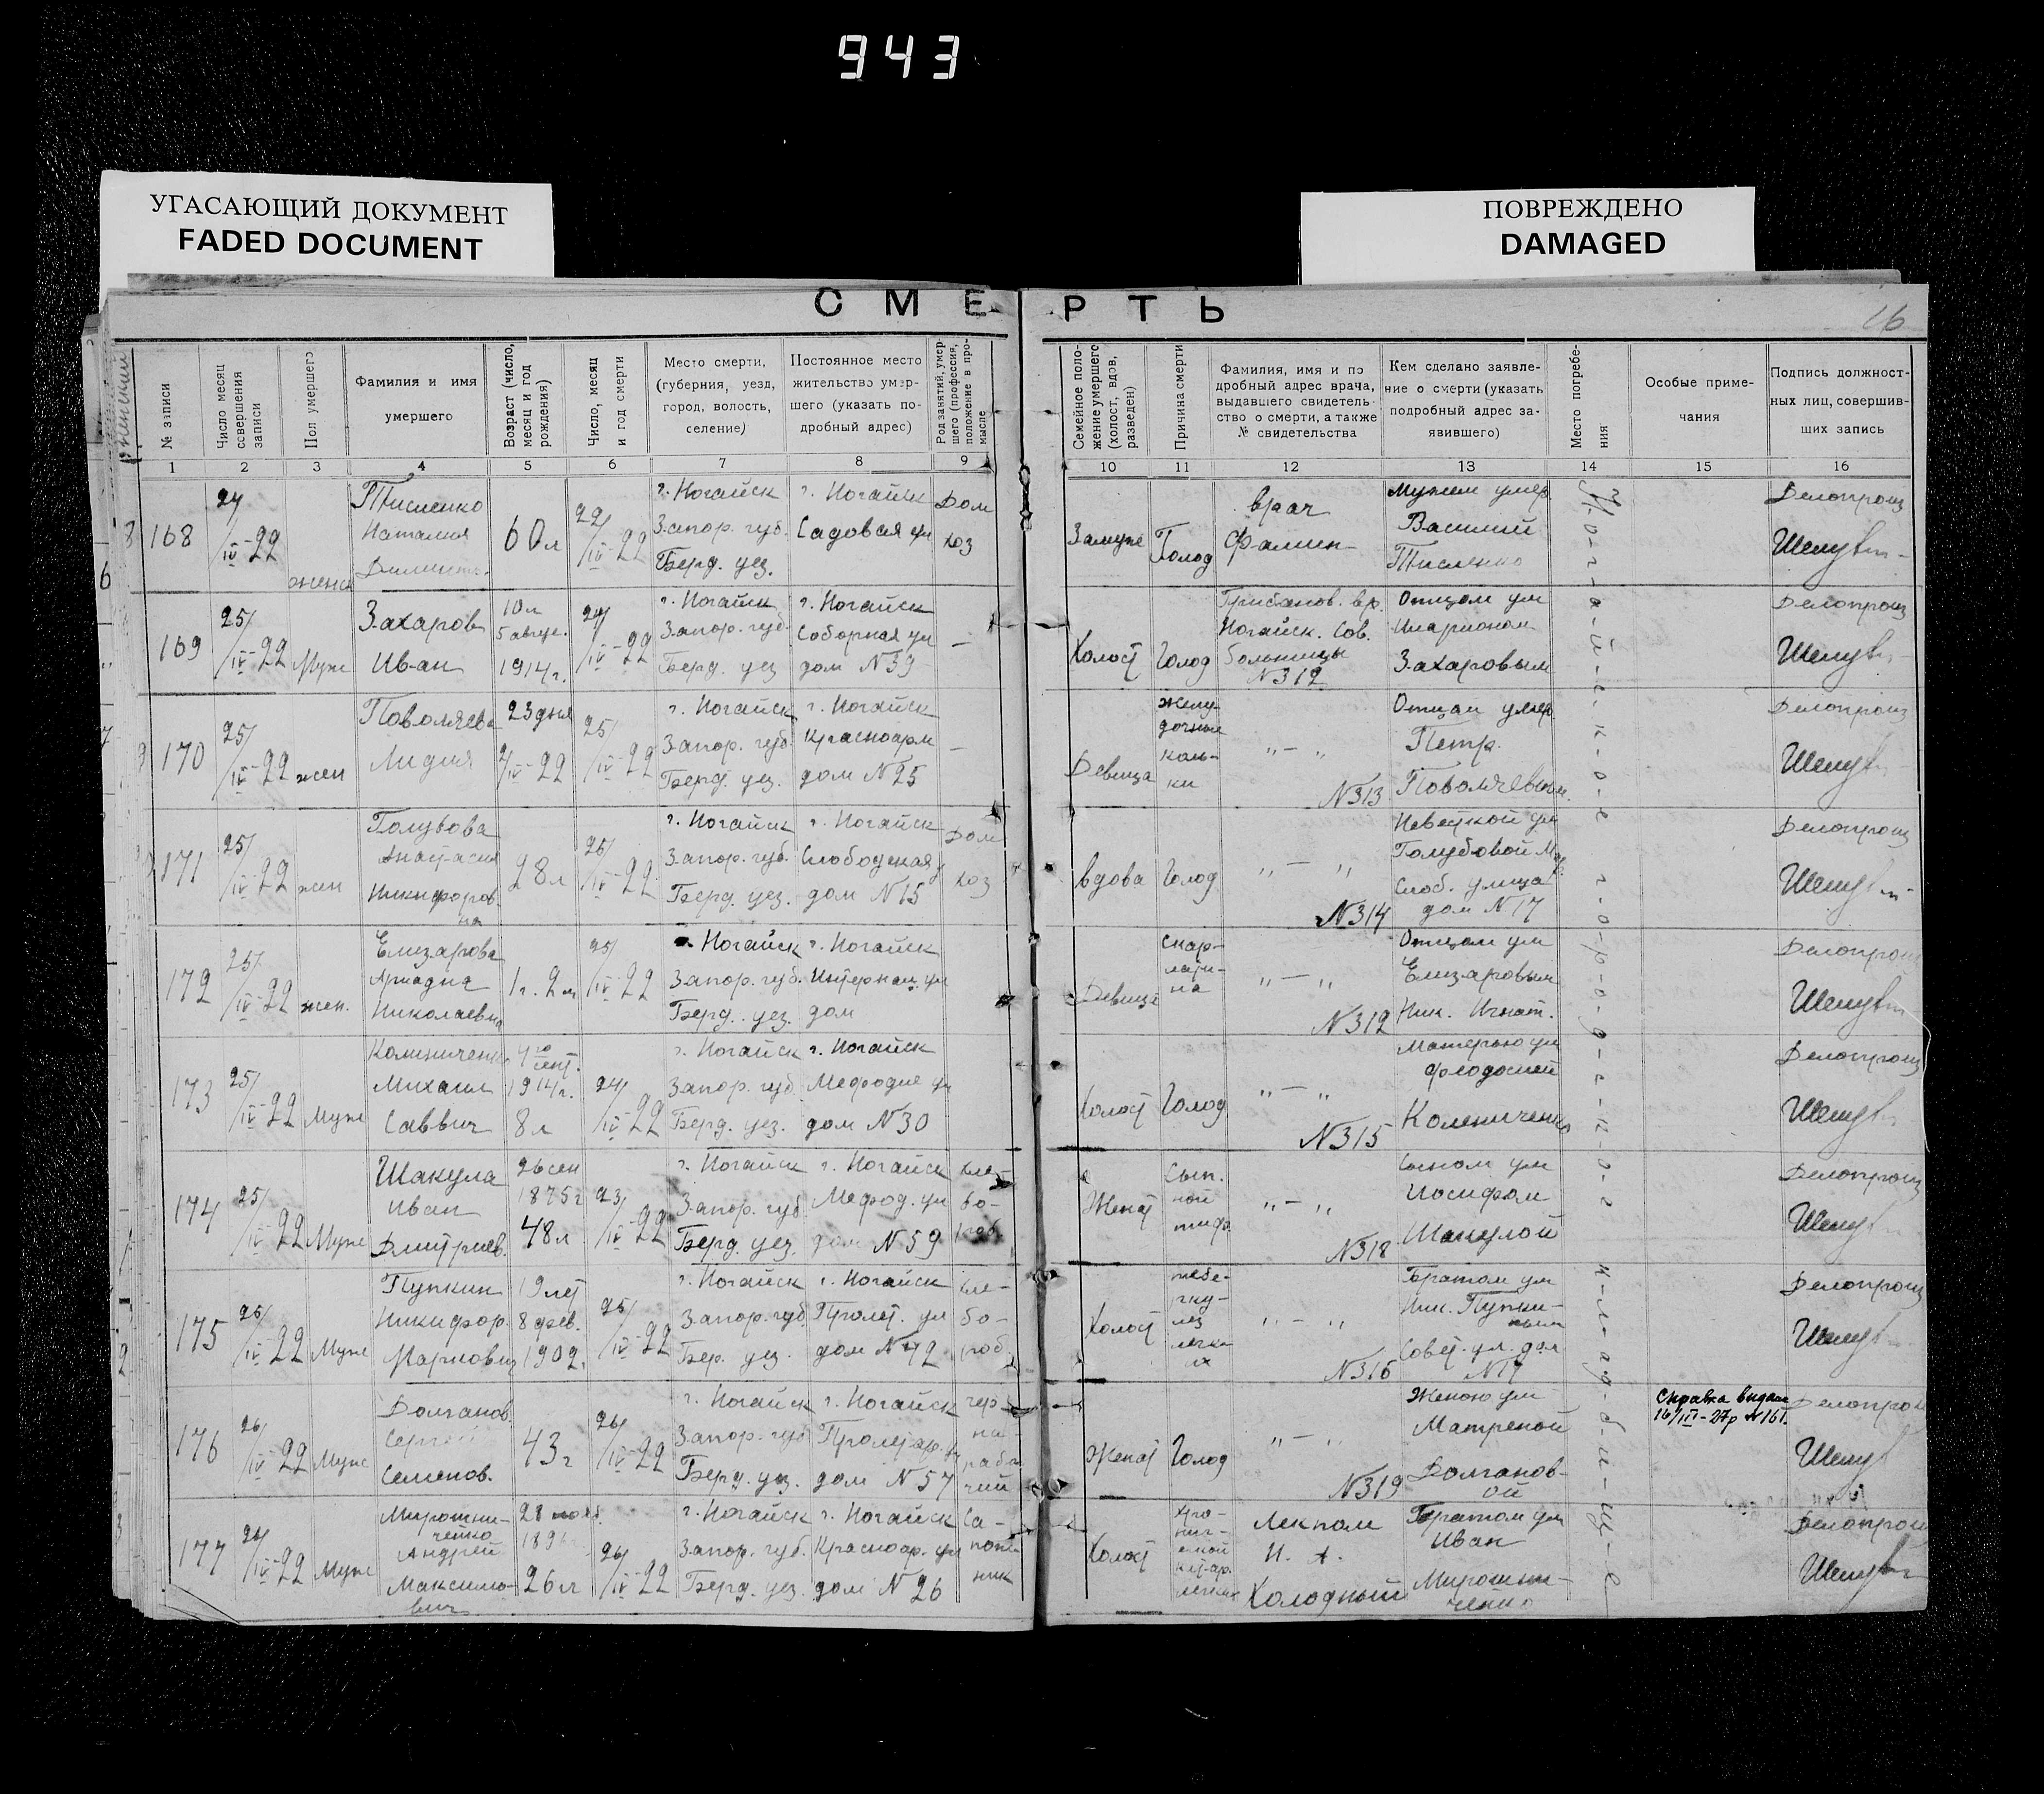 943
УГАСАЮЩИЙ ДОКУМЕНТ
FADED DOCUMENT
ПОВРЕЖДЕНО
DAMAGED
СМЕРТЬ
16
№ записи
Число месяц
совершения
записи
Пол умершего
Фамилия и имя
умершего
Возраст (число,
месяц и год
рождения)
Число, месяц
и год смерти
Место смерти,
(губерния, уезд,
город, волость,
селение)
Постоянное место
жительство умер-
шего (указать по-
дробный адрес)
Род занятий, умер-
шего (профессия,
положение в про-
мысле
Семейное поло-
жение умершего
(холост, вдов,
разведен)
Причина смерти
Фамилия, имя и по
дробный адрес врача,
выдавшего свидетель-
ство о смерти, а также
№ свидетельства
Кем сделано заявле-
ние о смерти (указать
подробный адрес за-
явившего)
Место погребе-
ния
Особые приме-
чания
Подпись должност-
ных лиц, совершив-
ших запись
1 2 3 4 5 6 7 8 9 10 11 12 13 14 15 16
168
24/IV-22
жена
Тисленко
Наталия
60 л
22/IV-22
г. Ногайск
Запор. губ.
Берд. уез.
г. Ногайск
Садовая ул
Дом
хоз
Замуже
Голод
врач
Фамин
мужем умер
Василий
Тисленко
Делопроиз
169
25/IV-22
Муж
Захаров
Иван
10 л
5 авгус.
1914 г.
24/IV-22
г. Ногайск
Запор. губ.
Берд. уез
г. Ногайск
Соборная ул
дом N39
—
Холост
Голод
Грибанов. вр.
Ногайск. Сов.
больницы
N312
Отцом ум
Иларионом
Захаровым
Делопроиз
170
25/IV-22
жен
Поволяева
Лидия
23 дня
2/IV-22
25/IV-22
г. Ногайск
Запор. губ.
Берд. уез.
г. Ногайск
Красноарм
дом N25
—
Девица
желу-
дочные
коли-
ки
„ — „
N313
Отцом умер.
Петр.
Делопроиз
171
25/IV-22
жен
Голубова
Анастасия
Никифоров
на
28 л
25/IV-22
г. Ногайск
Запор. губ.
Берд. уез.
г. Ногайск
Слободская у
дом N15
Дом
хоз
вдова
Голод
„ — „
N314
Невесткой ум
Голубовой
Слоб. улица
дом N17
Делопроиз
172
25/IV-22
жен.
Елизарова
Ариадна
Николаевна
1 г. 2 м
25/IV-22
Ногайск
Запор. губ.
Берд. уез.
г. Ногайск
Интернац. ул
дом
Девица
скар-
лати-
на
„ — „
N312
Отцом ум
Елизаровым
Ник. Игнат.
Делопроиз
173
25/IV-22
Муж
Михаил
Саввич
4го
сент.
1914 г.
8 л
24/IV-22
г. Ногайск
Запор. губ
Берд. уез.
г. Ногайск
Мефодие ул
дом N30
Холост
Голод
„ — „
N315
Матерью ум
Феодосией
Колениченко
Делопроиз
174
25/IV-22
Муж
Шакула
Иван
Дмитриев.
26 сен
1875 г
48 л
23/IV-22
г. Ногайск
Запор. губ.
Берд. уез.
г. Ногайск
Мефод. ул
дом N59
хле-
бо-
роб
Женат
Сып-
ной
тиф
„ — „
N318
Сыном ум
Иосифом
Шакулой
Делопроиз
175
25/IV-22
Муж
Пупкин
Никифор.
Маркович
19 лет
8 фев.
1902.
25/IV-22
г. Ногайск
Запор. губ
Бер. уез.
г. Ногайск
Пролет. ул
дом N42
хле-
бо-
роб
Холост
тубе-
рку-
лез
легки-
х
„ — „
N316
Братом ум
Ник. Пупки-
ным
Совет. ул. дом
N17
Делопроиз
176
26/IV-22
Муж
Долганов.
Сергей
Семенов.
43 г
26/IV-22
г. Ногайск
Запор. губ
Берд. уез.
г. Ногайск
Пролетар. ул
дом N57
чер
но-
рабо
чий
Женат
Голод
„ — „
N319
Женою ум
Матреной
Долганов-
ой
Справка выдана
16/III-27р N161.
Делопроиз
177
26/IV-22
Муж
Мирошни-
ченко
Андрей
Максимо-
вич
26 л
26/IV-22
г. Ногайск
Запор. губ.
Берд. уез.
г. Ногайск
Красноар. ул
дом N26
Са-
пож-
ник
Холост
Лекпом
И. А.
Холодный
Братом ум
Иван
Мирошни-
ченко
Делопроиз
Н-о-г-а-й-с-к-о-е г-о-р-о-д-с-к-о-е к-л-а-д-б-и-щ-е